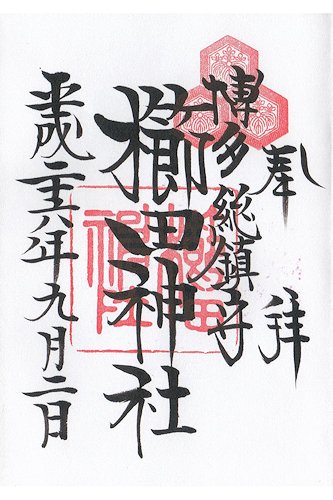 奉拝
博多総鎮守
櫛田神社
平成二十六年九月二日